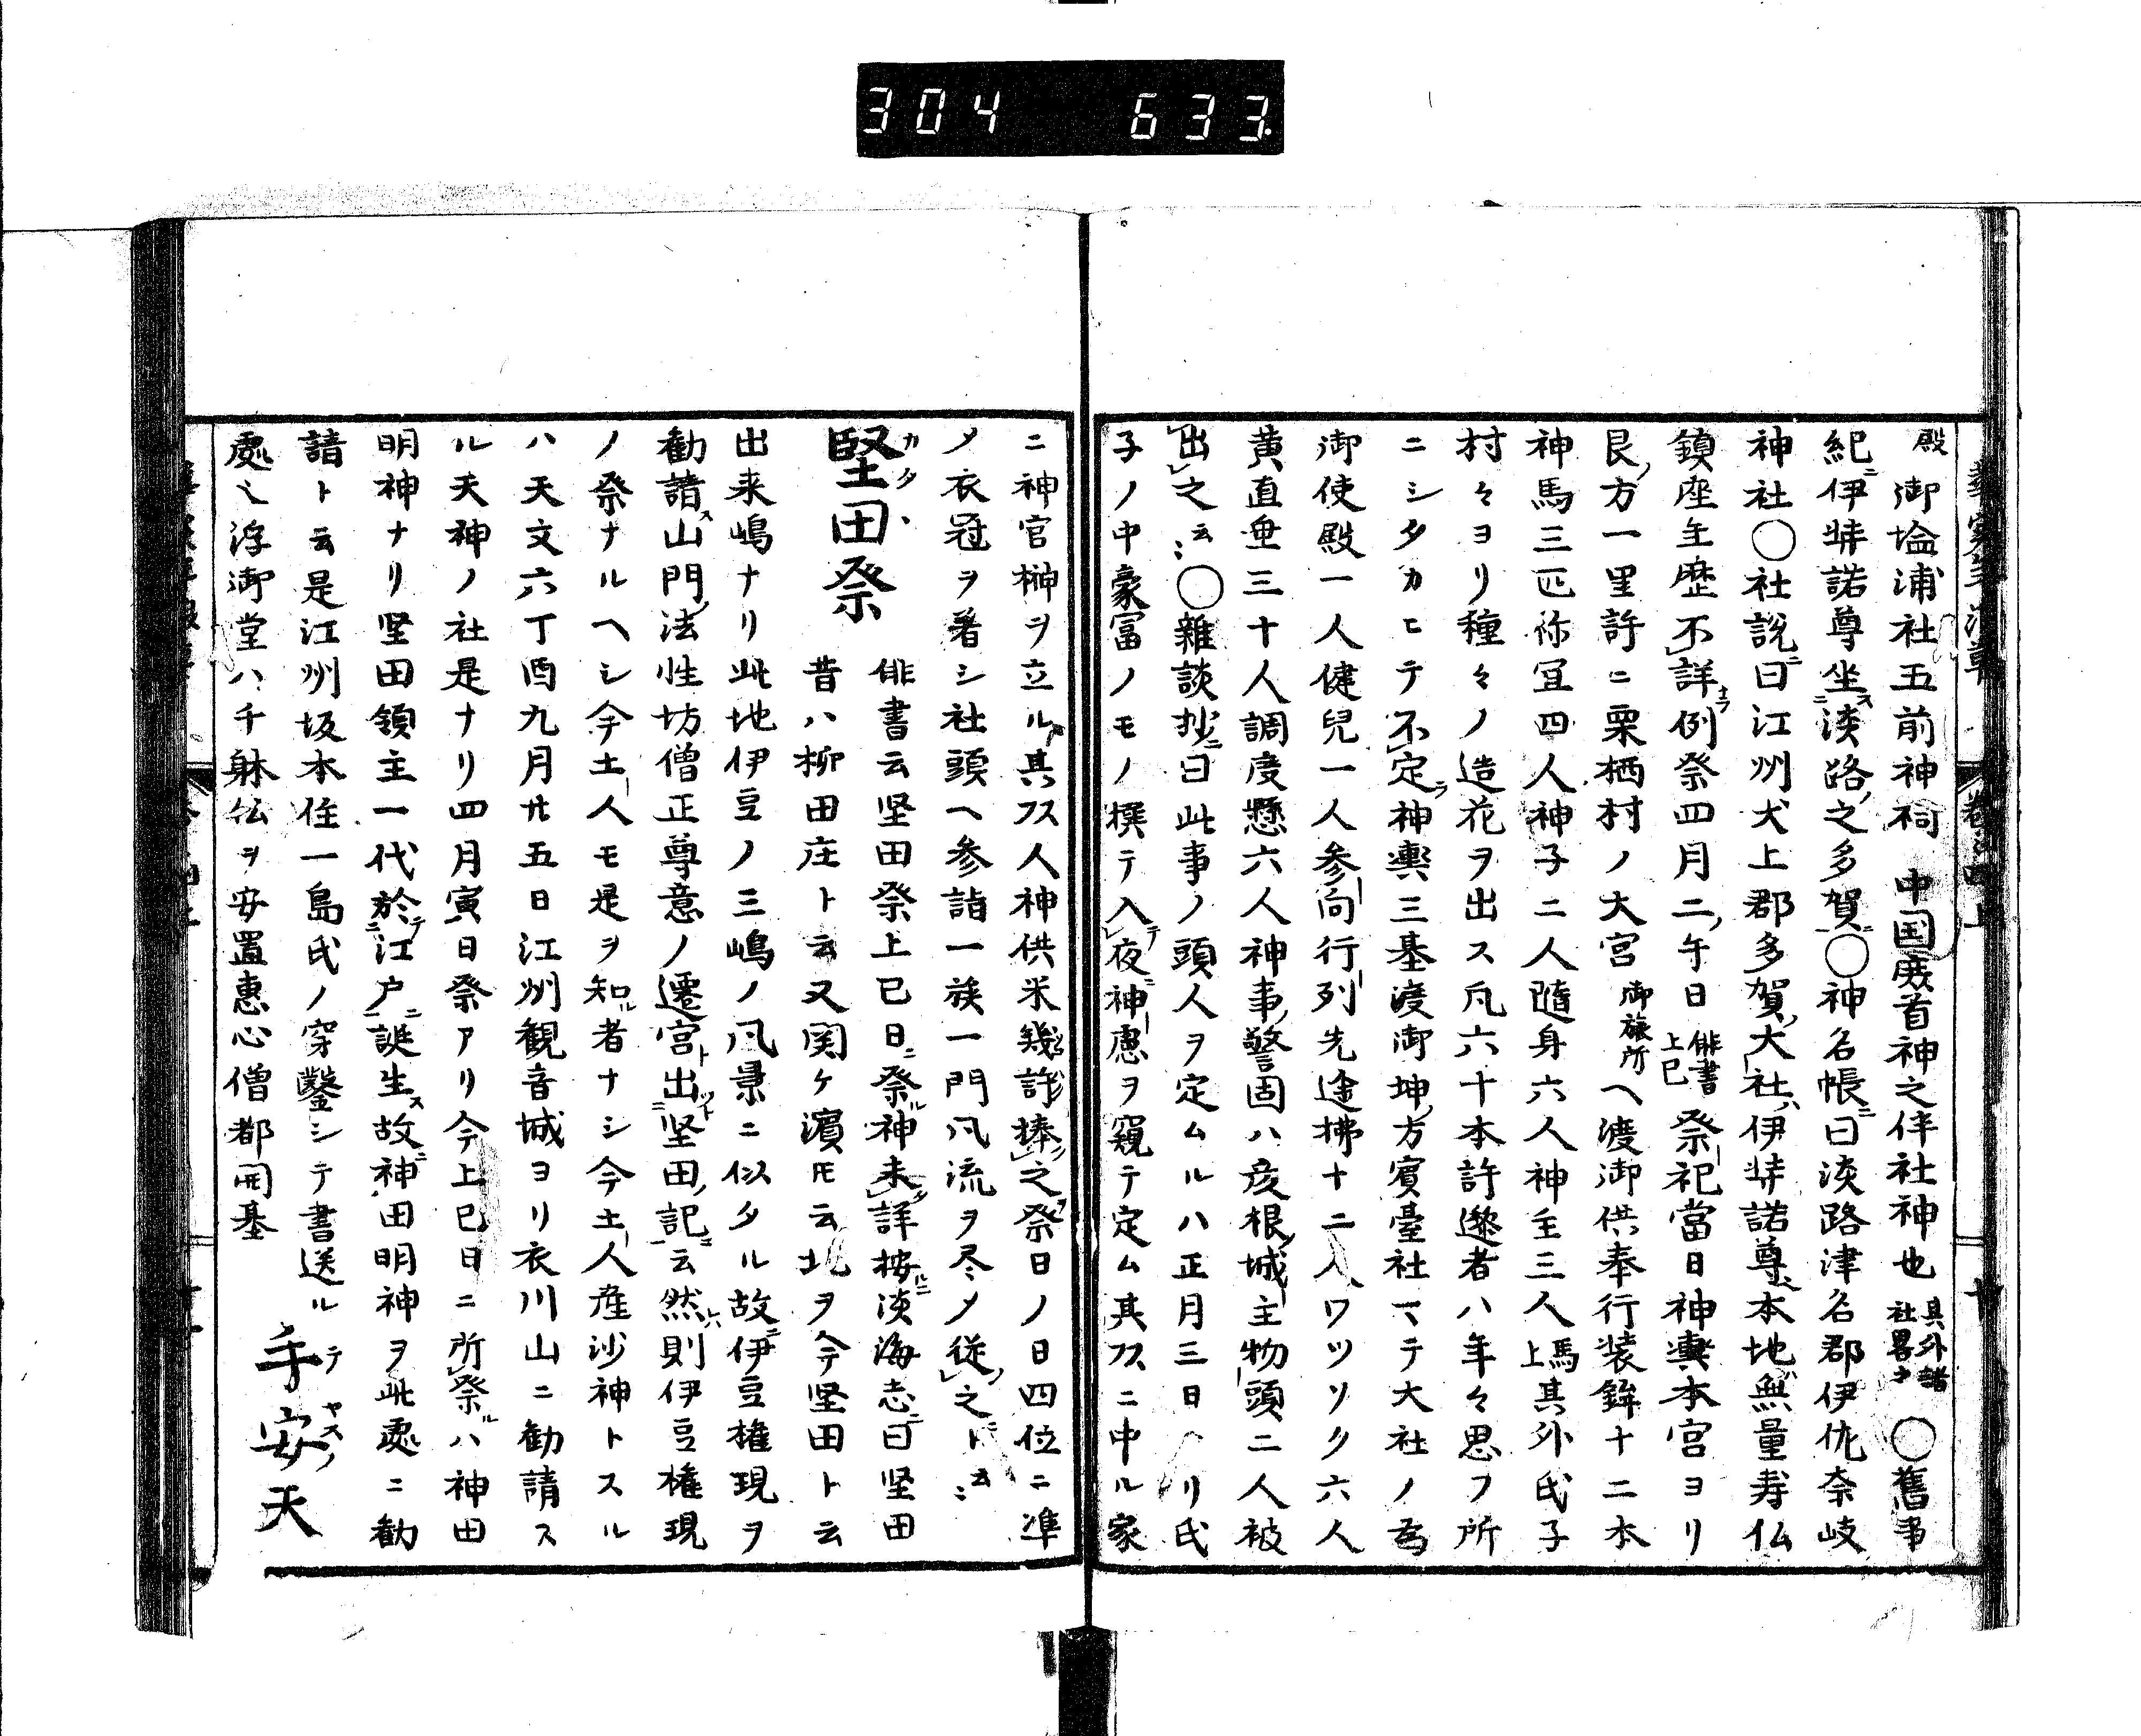 304 633
殿 御塩浦社五前神祠 中国廒首神之伴社神也 其外諸社畧す ○舊事
紀ニ伊弉諾尊坐ス淡路ノ之多賀ニ○神名帳ニ曰淡路津名郡伊佐奈岐
神社○社説ニ曰江州犬上郡多賀ノ大社ハ伊弉諾尊ハ本地無量寿仏
鎮座年歴不詳ナラ例祭四月二ノ午日 俳書上巳 祭祀當日神輿本宮ヨリ
艮ノ方一里許ニ栗栖村ノ大宮 御旅所 ヘ渡御供奉行装鉾十二本
神馬三匹祢宜四人神子二人随身六人神主三人馬上其外氏子
村々ヨリ種々ノ造花ヲ出ス凡六十本許邌者ハ年々思フ所
ニシタカヒテ不定ラ神輿三基渡御坤ノ方賓臺社マテ大社ノ為
御使殿一人健児一人参向行列先途拂十二人ワツソク六人
黄直垂三十人調度懸六人神事ノ警固ハ彦根ノ城主物頭二人被
出之云〻○雑談抄ニ曰此事ノ頭人ヲ定ムルハ正月三日ヨリ氏
子ノ中豪冨ノモノ撰テ入テ夜ニ神慮ヲ窺テ定ム其フスニ中ル家
ニ神官榊ヲ立ル其フス人神供米幾許捧之祭日ノ日四位ニ準
メ衣冠ヲ著シ社頭ヘ参詣一族一門凡流ヲ尽メ従之ニト云〻
堅田祭 カタヽ 俳書云坚田祭上巳日ニ祭ル神未詳按ルニ淡海志ニ曰坚田
昔ハ柳田庄ト云又関ケ濱トモ云北ヲ今坚田ト云
出来嶋ナリ此地伊豆ノ三嶋ノ凡景ニ似タル故ニ伊豆權現ヲ
勧請ス山門ノ法性坊僧正尊意ノ遷宮ト出ツト坚田ノ記ニ云然ハ則伊豆權現
ノ祭ナルヘシ今土人モ是ヲ知ル者ナシ今土人産沙神トスル
ハ天文六丁酉九月廿五日江州観音城ヨリ衣川山ニ勧請ス
ル天神ノ社是ナリ四月寅日祭アリ今上巳日ニ所祭ルハ神田
明神ナリ坚田領主一代於テ江戸ニ誕生ス故ニ神田明神ヲ此處ニ勧
請ト云是江州坂本住一島氏ノ穿鑿シテ書送ル 千安天 テ ヤスノ
處〻浮御堂ハ千躰仏ヲ安置惠心僧都開基